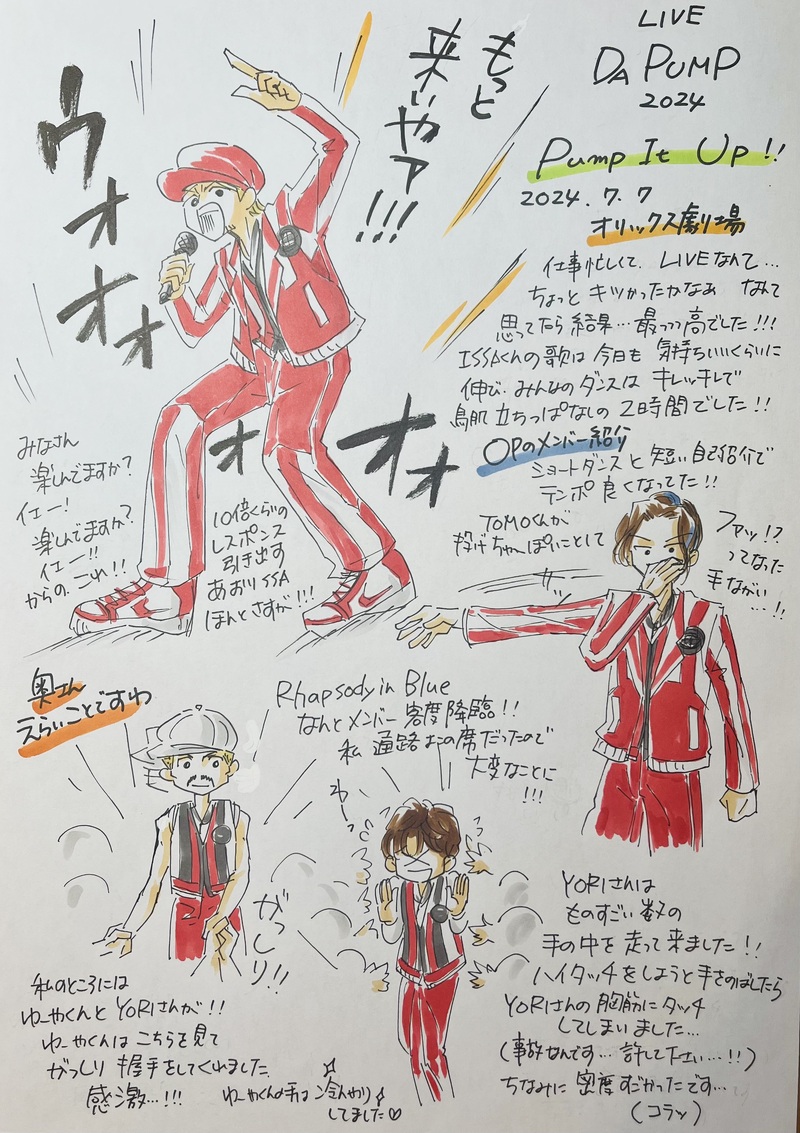 LIVE
DA PUMP
2024
Pump It Up!!
2024.7.7
オリックス劇場
仕事忙しくて、LIVEなんて…
ちょっと キツかったかなぁ なんて
思ってたら 結果…最っっ高でした!!!
ISSAくんの歌は 今日も 気持ちいいくらいに
伸び、みんなのダンスは キレッキレで
鳥肌 立ちっぱなしの 2時間でした!!
OPのメンバー紹介
ショートダンスと 短い自己紹介で
テンポ 良くなってた!!
TOMOくんが
投げちゅーぽいことして
ファッ!?
ってなった
手ながい…!!
もっと
来いやァ!!!
ウォオオ
ォオオ
みなさん
楽しんでますか?
イェー!
楽しんでますか?
イェー!!
からの、これ!!
10倍くらいの
レスポンス
引き出す
あおりISSA
ほんとさすが!!!
奥さん
えらいことですわ
Rhapsody in Blue
なんとメンバー 客席降臨!!
私 通路よこの席だったので
大変なことに
!!!
わーっ
がっしり!!
私のところには
ゆーやくんと YORIさんが!!
ゆーやくんは こちらを見て
がっしり 握手をしてくれました
感激…!!!
ゆーやくんの手は 冷んやり
してました♡
YORIさんは
ものすごい 数の
手の中を 走って来ました!!
ハイタッチをしようと手をのばしたら
YORIさんの 胸筋に タッチ
してしまいました…
(事故なんです…許して下さい…!!)
ちなみに 密度すごかったです…
(コラッ)